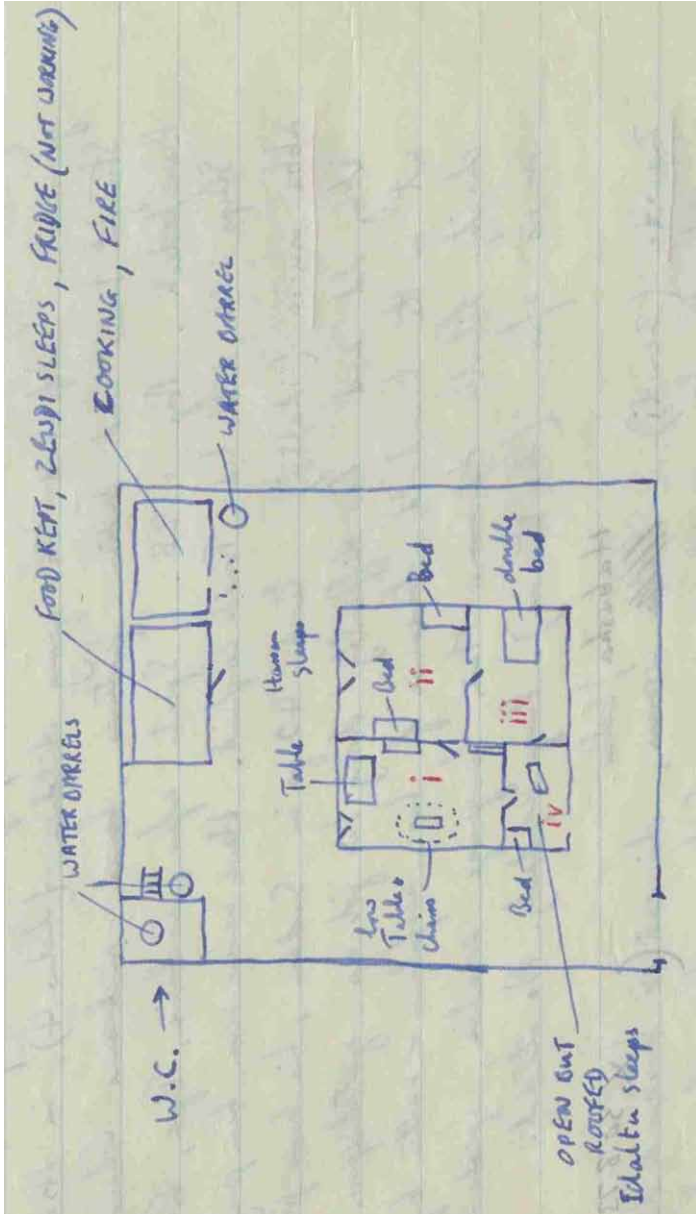 FOOD KEPT, ZENDI SLEEPS, FRIDGE (NOT WORKING)
COOKING, FIRE
WATER BARRELS
WATER BARREL
W.C. →
Table
Hassan
sleeps
Bed
Bed
i
ii
low
Table &
chairs
iii
double
bed
Bed
iv
OPEN BUT
ROOFED
Idaltu sleeps